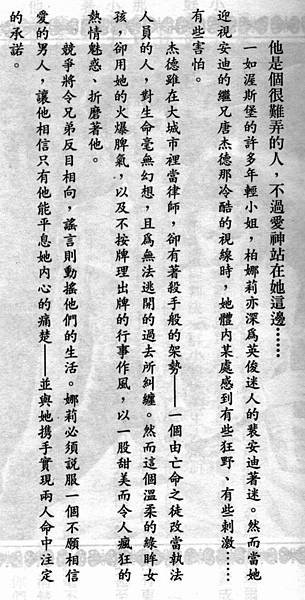 他是個很難弄的人，不過愛神站在她這邊……
一如渥斯堡的許多年輕小姐，柏娜莉亦深為英俊迷人的裴安迪著迷。然而當她
迎視安迪的繼兄唐杰德那冷酷的視線時，她體內某處感到有些狂野、有些刺激……或
有些害怕。
杰德雖在大城市裡當律師，卻有著殺手般的架勢——一個由亡命之徒改當執法
人員的人，對生命毫無幻想，且為無法逃開的過去所糾纏。然而這個溫柔的綠眸女
孩，卻用她的火爆脾氣，以及不按牌理出牌的行事作風，以一股甜美而令人瘋狂的
熱情魅惑、折磨著他。
競爭將令兄弟反目相向，謠言則動搖他們的生活。娜莉必須說服一個不願相信
愛的男人，讓他相信只有他能平息她內心的痛楚——並與她携手實現兩人命中注定
的承諾。